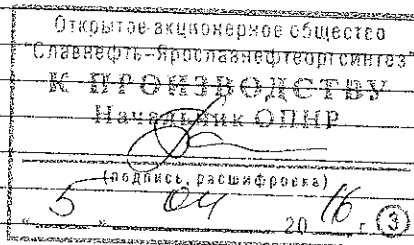 Открытое акционерное общество
"Славнефть-Ярославнефтеоргсинтез"
К ПРОИЗВОДСТВУ
Начальник ОПНР
(подпись, расшифровка)
" 5 " 04 20 16 г. 3